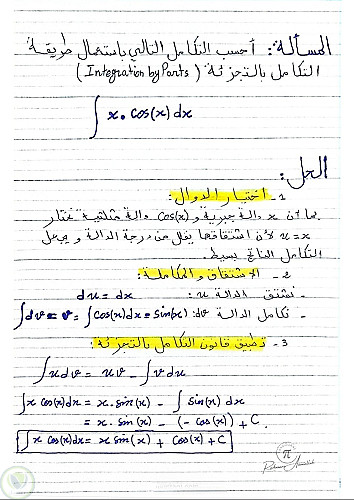 المسألة: أحسب التكامل التالي باستعمال طريقة
التكامل بالتجزئة (Integration by Parts)
∫ x . cos(x) dx
الحل:
1- اختيار الدوال:
بما أن x دالة جبرية و cos(x) دالة مثلثية نختار
u=x لأن اشتقاقها يقلل من درجة الدالة و يجعل
التكامل الناتج بسيط.
2- الاشتقاق والمكاملة:
- نشتق الدالة u: du = dx
- نكامل الدالة dv: ∫dv = v = ∫cos(x)dx = sin(x)
3- تطبيق قانون التكامل بالتجزئة:
∫u dv = uv - ∫v du
∫x cos(x)dx = x. sin(x) - ∫ sin(x) dx
= x. sin(x) - (- cos(x)) + C.
∫x cos(x)dx = x sin(x) + cos(x) + C
π